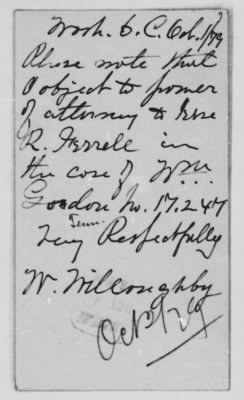 Wash. D.C. Oct. 1/79
Please note that
I object to power
of attorney to Esse
R. Ferrell in
the case of Wm.
Goodon No. 17.247
Tenn.
Very Respectfully
W. Willoughby
Oct 1/79